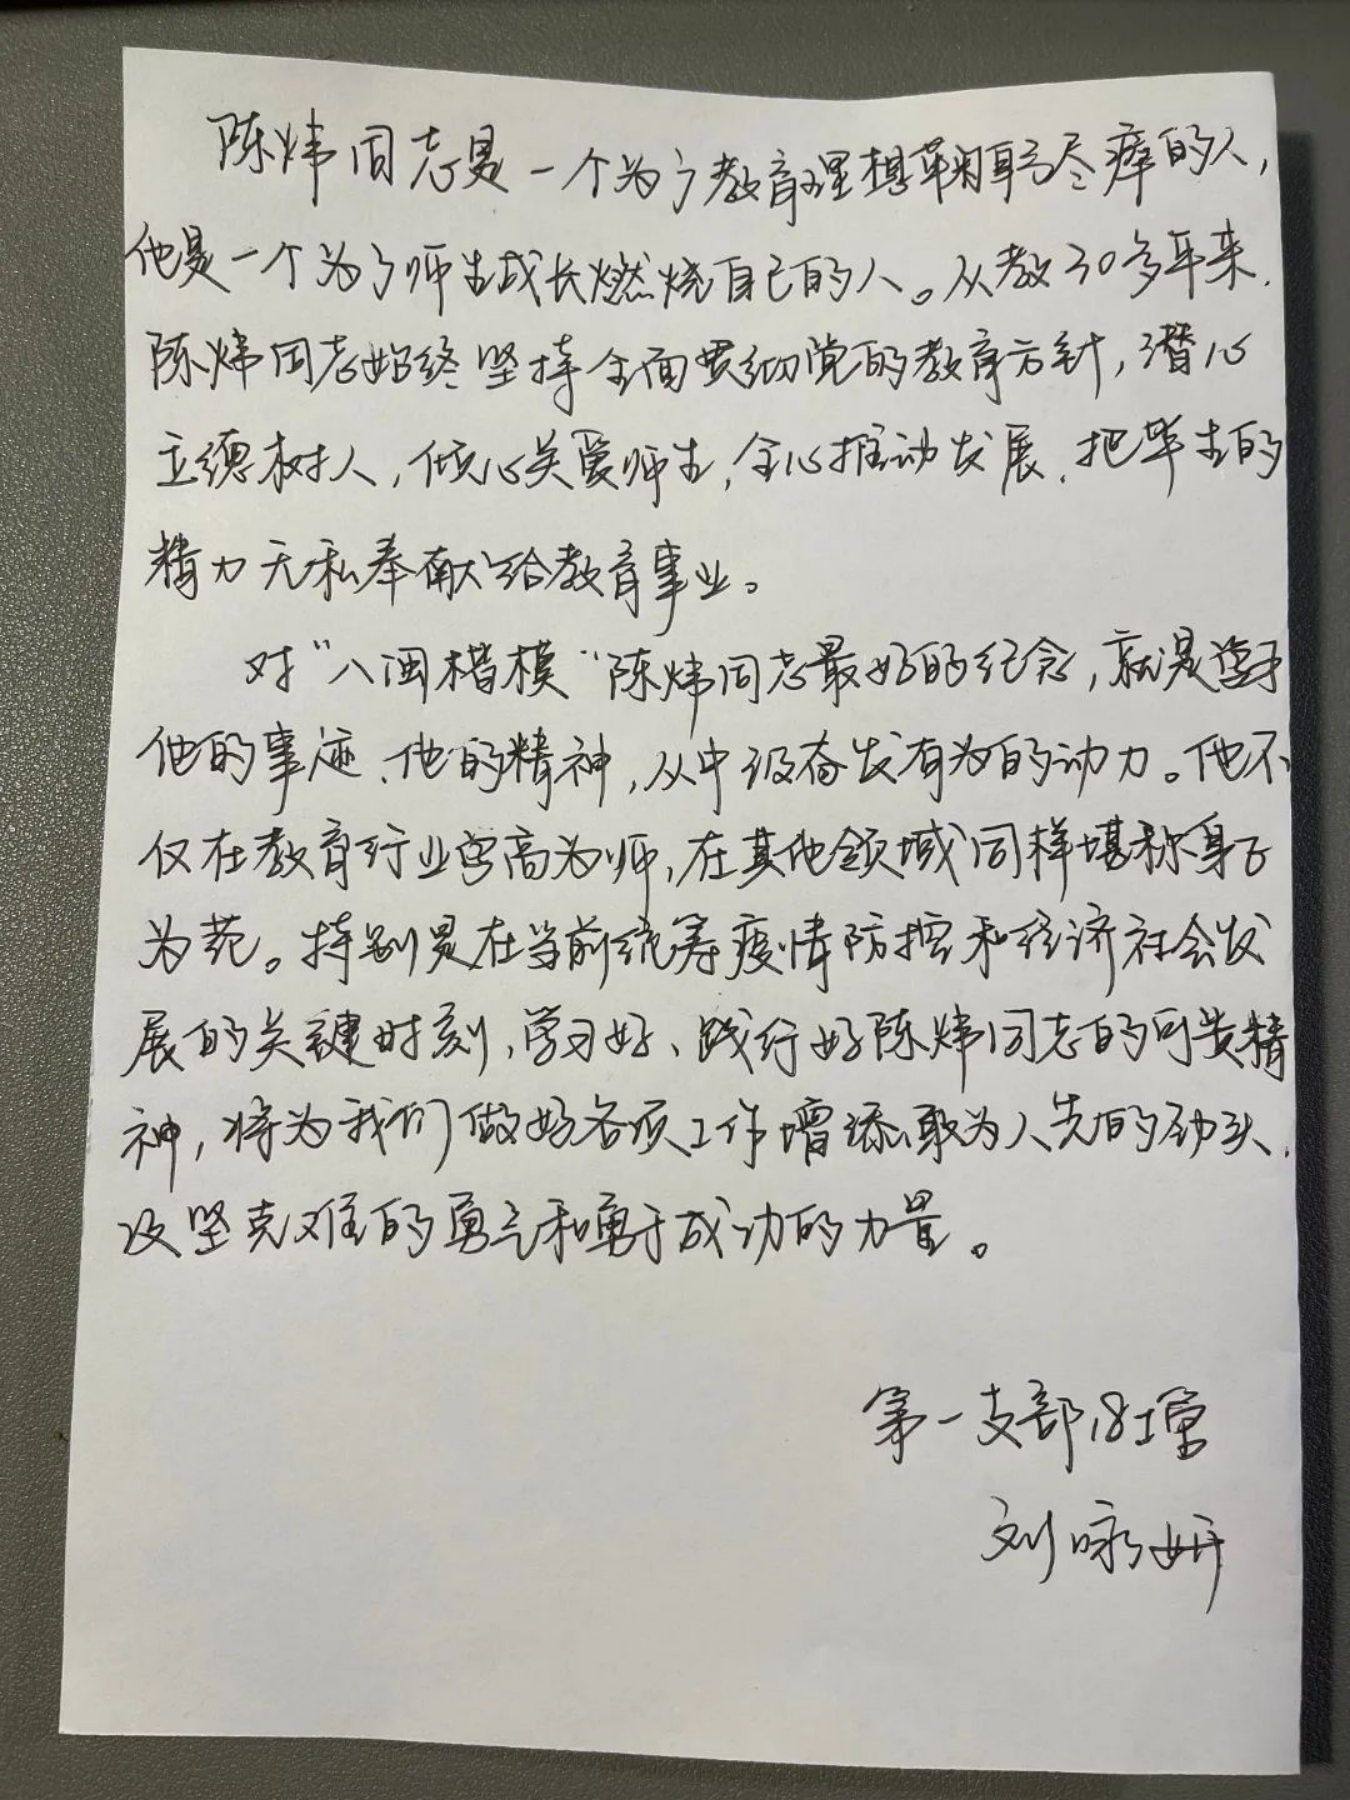 陈炜同志是一个为了教育理想鞠躬尽瘁的人，
他是一个为了师生成长燃烧自己的人。从教30多年来，
陈炜同志始终坚持全面贯彻党的教育方针，潜心
立德树人，倾心关爱师生，全心推动发展，把毕生的
精力无私奉献给教育事业。
对“八闽楷模”陈炜同志最好的纪念，就是
他的事迹、他的精神，从中汲奋发有为的动力。他不
仅在教育行业学高为师，在其他领域同样堪称身正
为范。特别是在当前统筹疫情防控和经济社会发
展的关键时刻，学习好、践行好陈炜同志的可贵精
神，将为我们做好各项工作增添敢为人先的劲头、
攻坚克难的勇气和勇于成功的力量。
第一支部18
刘咏妍